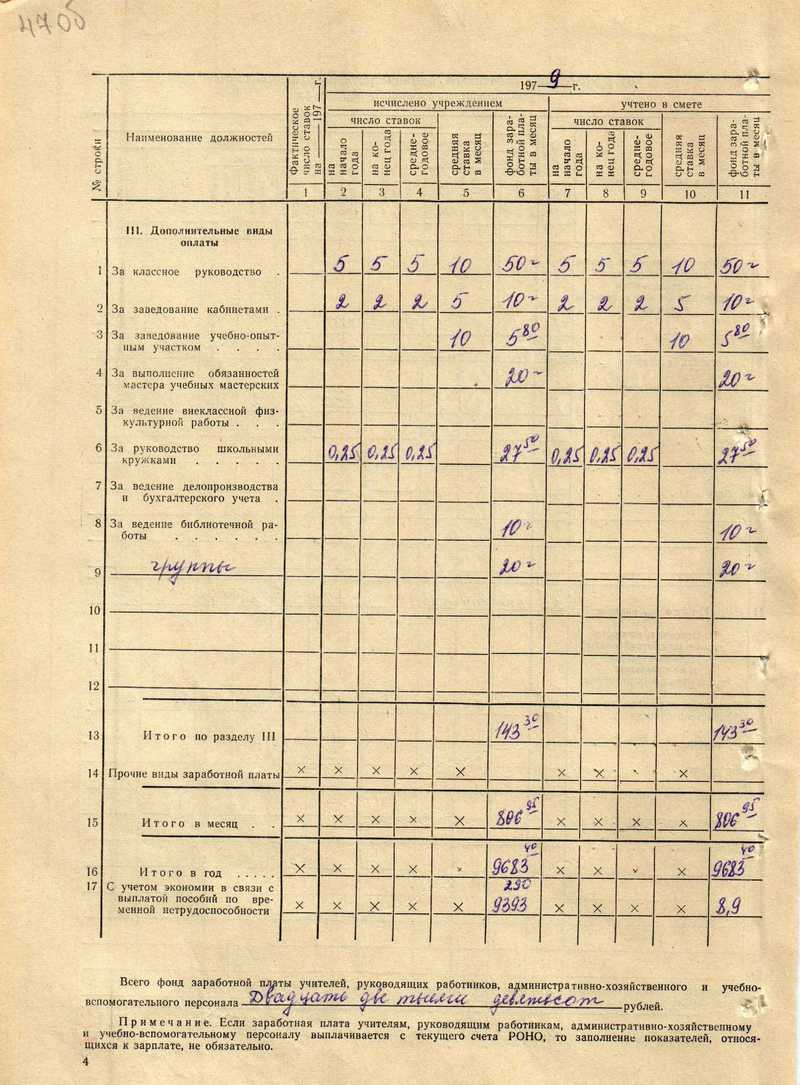 470б
№ строки
Наименование должностей
Фактическое число ставок на — 197 — г.
197 9 г.
исчислено учреждением
учтено в смете
число ставок
средняя ставка в месяц
фонд заработной платы в месяц
число ставок
средняя ставка в месяц
фонд заработной платы в месяц
на начало года
на конец года
среднегодовое
на начало года
на конец года
среднегодовое
1 2 3 4 5 6 7 8 9 10 11
III. Дополнительные виды
оплаты
1 За классное руководство . 5 5 5 10 50 5 5 5 10 50
2 За заведование кабинетами . 2 2 2 5 10 2 2 2 5 10
3 За заведование учебно-опыт-
ным участком . . . . 10 5 80 10 5 80
4 За выполнение обязанностей
мастера учебных мастерских 20 20
5 За ведение внеклассной физ-
культурной работы . . .
6 За руководство школьными
кружками . . . . . 0,25 0,25 0,25 27 50 0,25 0,25 0,25 27 50
7 За ведение делопроизводства
и бухгалтерского учета .
8 За ведение библиотечной ра-
боты . . . . . . 10 10
9 группы 20 20
10
11
12
13 Итого по разделу III 143 30 143 30
14 Прочие виды заработной платы × × × × × × × ×
15 Итого в месяц . . × × × × × 806 95 × × × × 806 95
16 Итого в год . . . . . × × × × 9683 40 × × × 9683 40
17 С учетом экономии в связи с 290
выплатой пособий по вре-
менной нетрудоспособности × × × × × 9393 × × × × 8,9
Всего фонд заработной платы учителей, руководящих работников, административно-хозяйственного и учебно-
вспомогательного персонала Двадцать две тысячи девятьсот рублей.
Примечание. Если заработная плата учителям, руководящим работникам, административно-хозяйственному
и учебно-вспомогательному персоналу выплачивается с текущего счета РОНО, то заполнение показателей, относя-
щихся к зарплате, не обязательно.
4